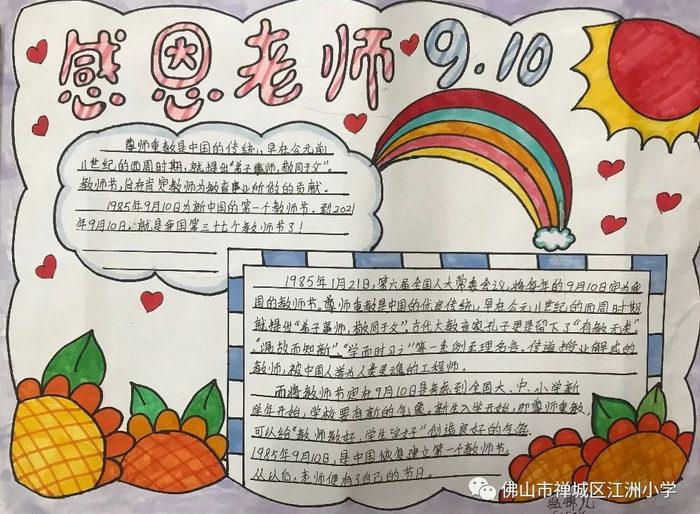 感恩老师 9.10
尊师重教是中国的传统,早在公元前
11世纪的西周时期,就提出“弟子事师,敬同于父”。
教师节,旨在肯定教师为教育事业所做的贡献。
1985年9月10日为新中国的第一个教师节。到2021
年9月10日,就是我国第三十七个教师节了!
1985年1月21日,第六届全国人大常委会议,将每年的9月10定为我
国的教师节。尊师重教是中国的优良传统,早在公元11世纪的西周时期
就提出“弟子事师,敬同于父”,古代大教育家孔子更是留下了“有教无类”
“温故而知新”,“学而时习之”等一系列至理名言。传道授业解惑的
教师,被中国人誉为人类灵魂的工程师。
而将教师节定在9月10日是考虑到全国大、中、小学新
学年开始,学校要有新的气象。新生入学开始,即尊师重教,
可以给“教师教好,学生学好”创造良好的气氛
1985年9月10日,是中国恢复建立第一个教师节,
从此以后,老师便有了自己的节日。
佛山市禅城区江洲小学